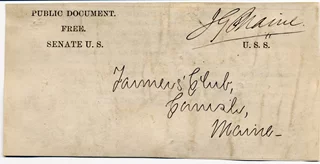 PUBLIC DOCUMENT.
FREE.
SENATE U. S.
J G Blaine
U. S. S.
Farmers' Club,
Cornish,
Maine-